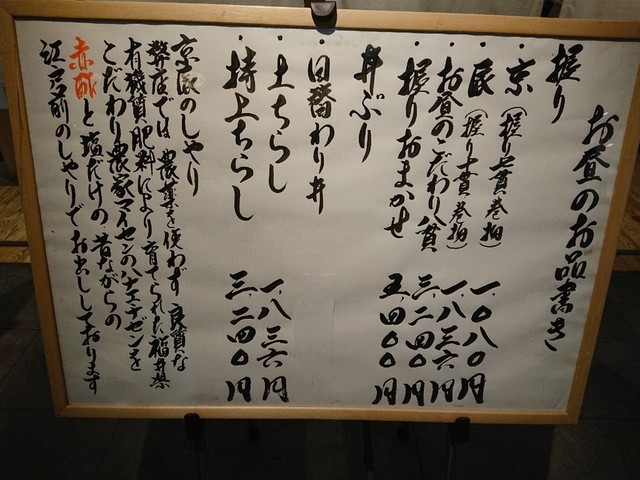 お昼のお品書き
握り
・京（握り七貫巻物） 一、〇八〇円
・辰（握り十貫巻物） 一、八三六円
・お昼のこだわり八貫 三、二四〇円
・握りおまかせ 五、四〇〇円
丼ぶり
・日替わり丼
・上ちらし 一、八三六円
・特上ちらし 三、二四〇円
京辰のしゃり
弊店では 農薬を使わず 良質な
有機質肥料により育てられた福井県
こだわり農家マイセンのハナエチゼンを
赤酢と塩だけの、昔ながらの
江戸前のしゃりでお出ししております